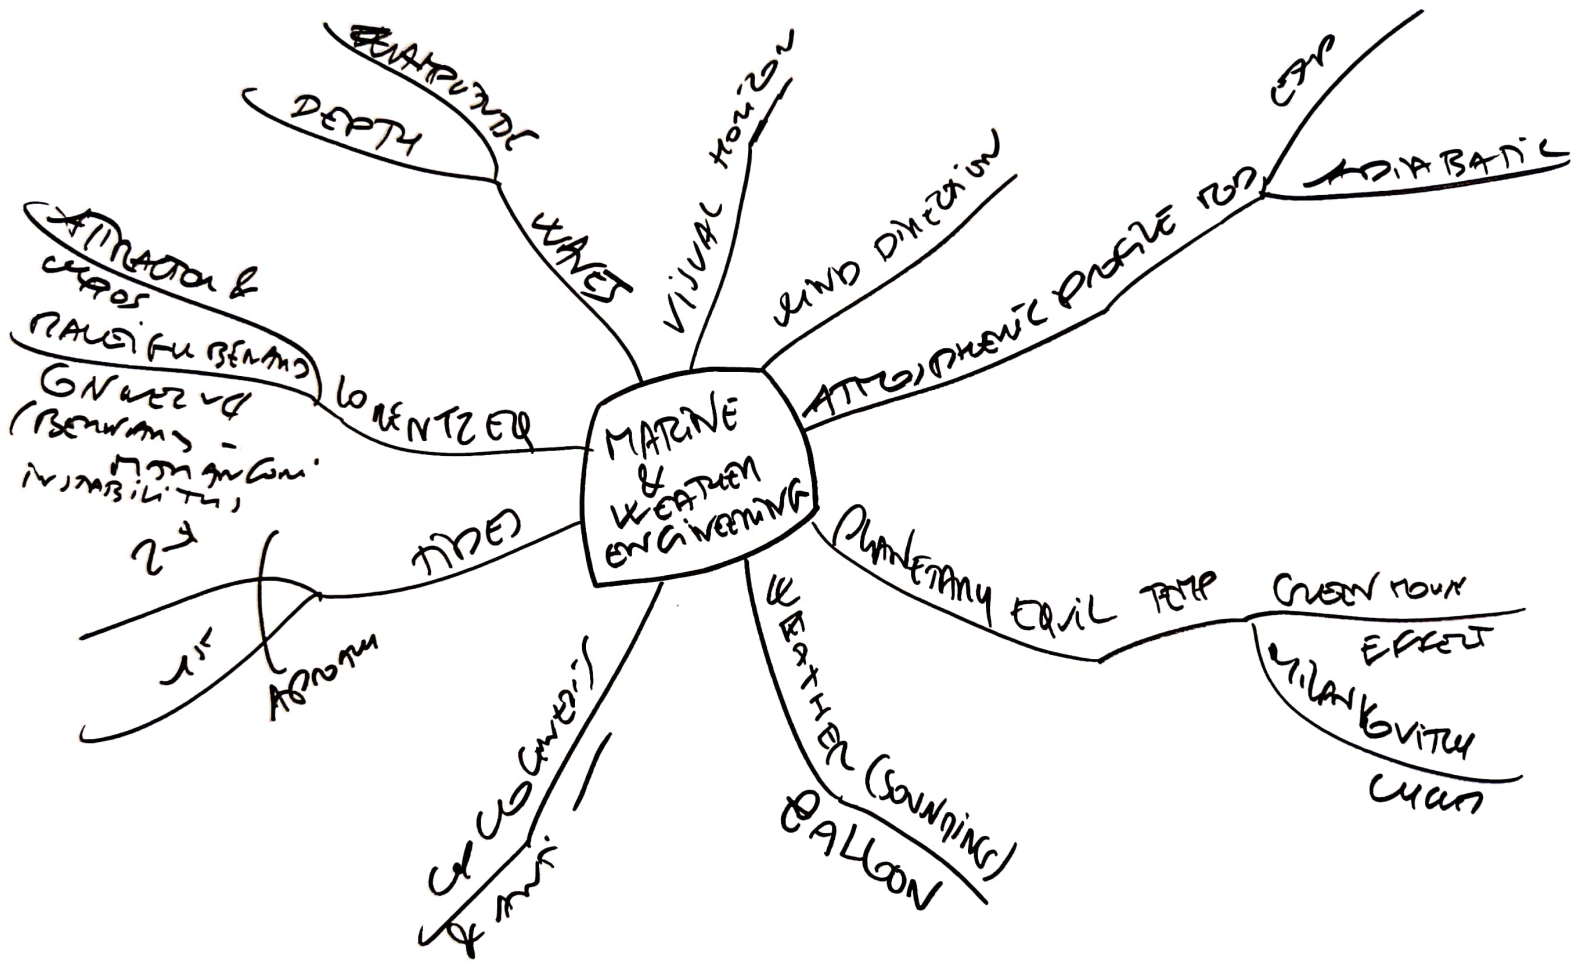 MARINE
&
WEATHER
ENGINEERING
AMPLITUDE
DEPTH
WAVES
VISUAL HORIZON
WIND DIRECTION
ATMOSPHERIC PROFILE MOD
EXP
ADIABATIC
PLANETARY EQUIL TEMP
GREEN HOUSE
EFFECT
MILANKOVITCH
WEATHER (SOUNDING)
BALLOON
CYCLOGENESIS
& ANTI
TIDES
2ND
1ST
LORENTZ EQ
ATTRACTOR &
CHAOS
RALEIGH BENARD
(BENARD -
INSTABILITY)